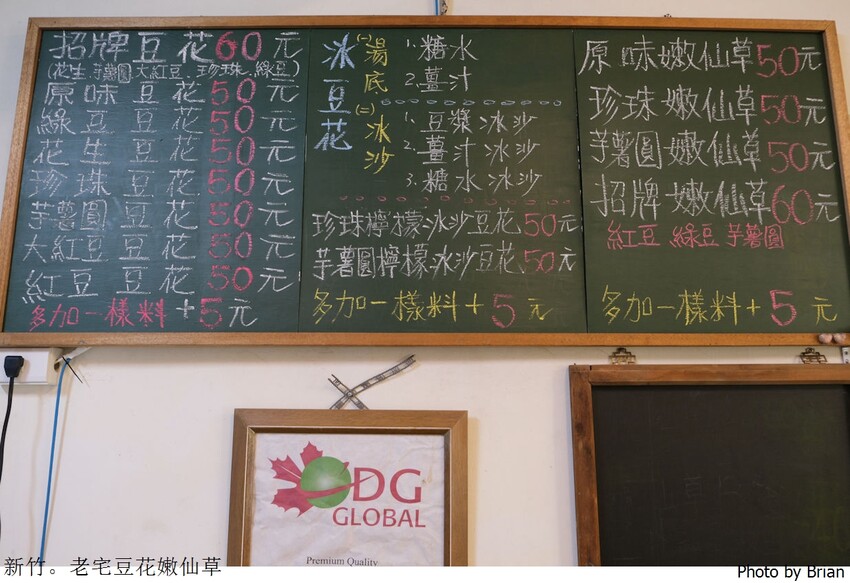 招牌豆花60元
(花生、芋薯圓、大紅豆、珍珠、綠豆)
原味豆花50元
綠豆豆花50元
花生豆花50元
珍珠豆花50元
芋薯圓豆花50元
大紅豆豆花50元
紅豆豆花50元
多加一樣料+5元
冰豆花
(一)湯底
1.糖水
2.薑汁
(二)冰沙
1.豆漿冰沙
2.薑汁冰沙
3.糖水冰沙
珍珠檸檬冰沙豆花50元
芋薯圓檸檬冰沙豆花50元
多加一樣料+5元
原味嫩仙草50元
珍珠嫩仙草50元
芋薯圓嫩仙草50元
招牌嫩仙草60元
紅豆、綠豆芋薯圓
多加一樣料+5元
DG
GLOBAL
Premium Quality
新竹。老宅豆花嫩仙草
Photo by Brian